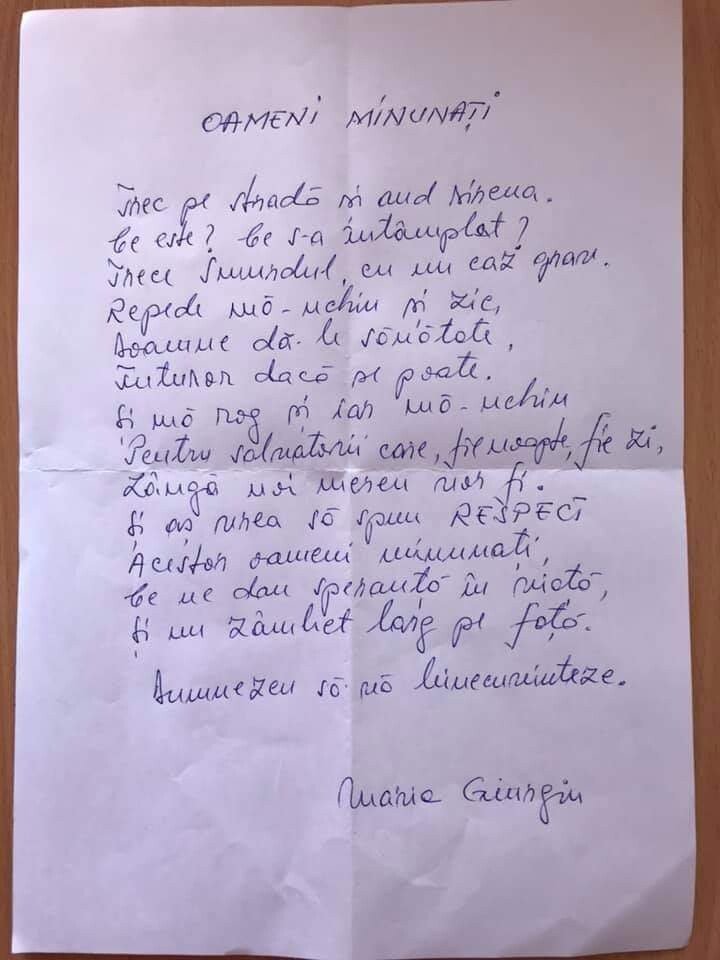 OAMENI MINUNAȚI
Trec pe stradă și aud sirena.
Ce este? Ce s-a întâmplat?
Trece Smurdul, cu un caz grav.
Repede mă-nchin și zic,
Doamne dă-le sănătate,
Tuturor dacă se poate.
Și mă rog și iar mă-nchin
Pentru salvatorii care, fie noapte, fie zi,
Lângă noi mereu vor fi.
Și aș vrea să spun RESPECT
Acestor oameni minunați,
Ce ne dau speranță în viață,
Și un zâmbet larg pe față.
Dumnezeu să vă binecuvinteze.
Maria Giurgiu